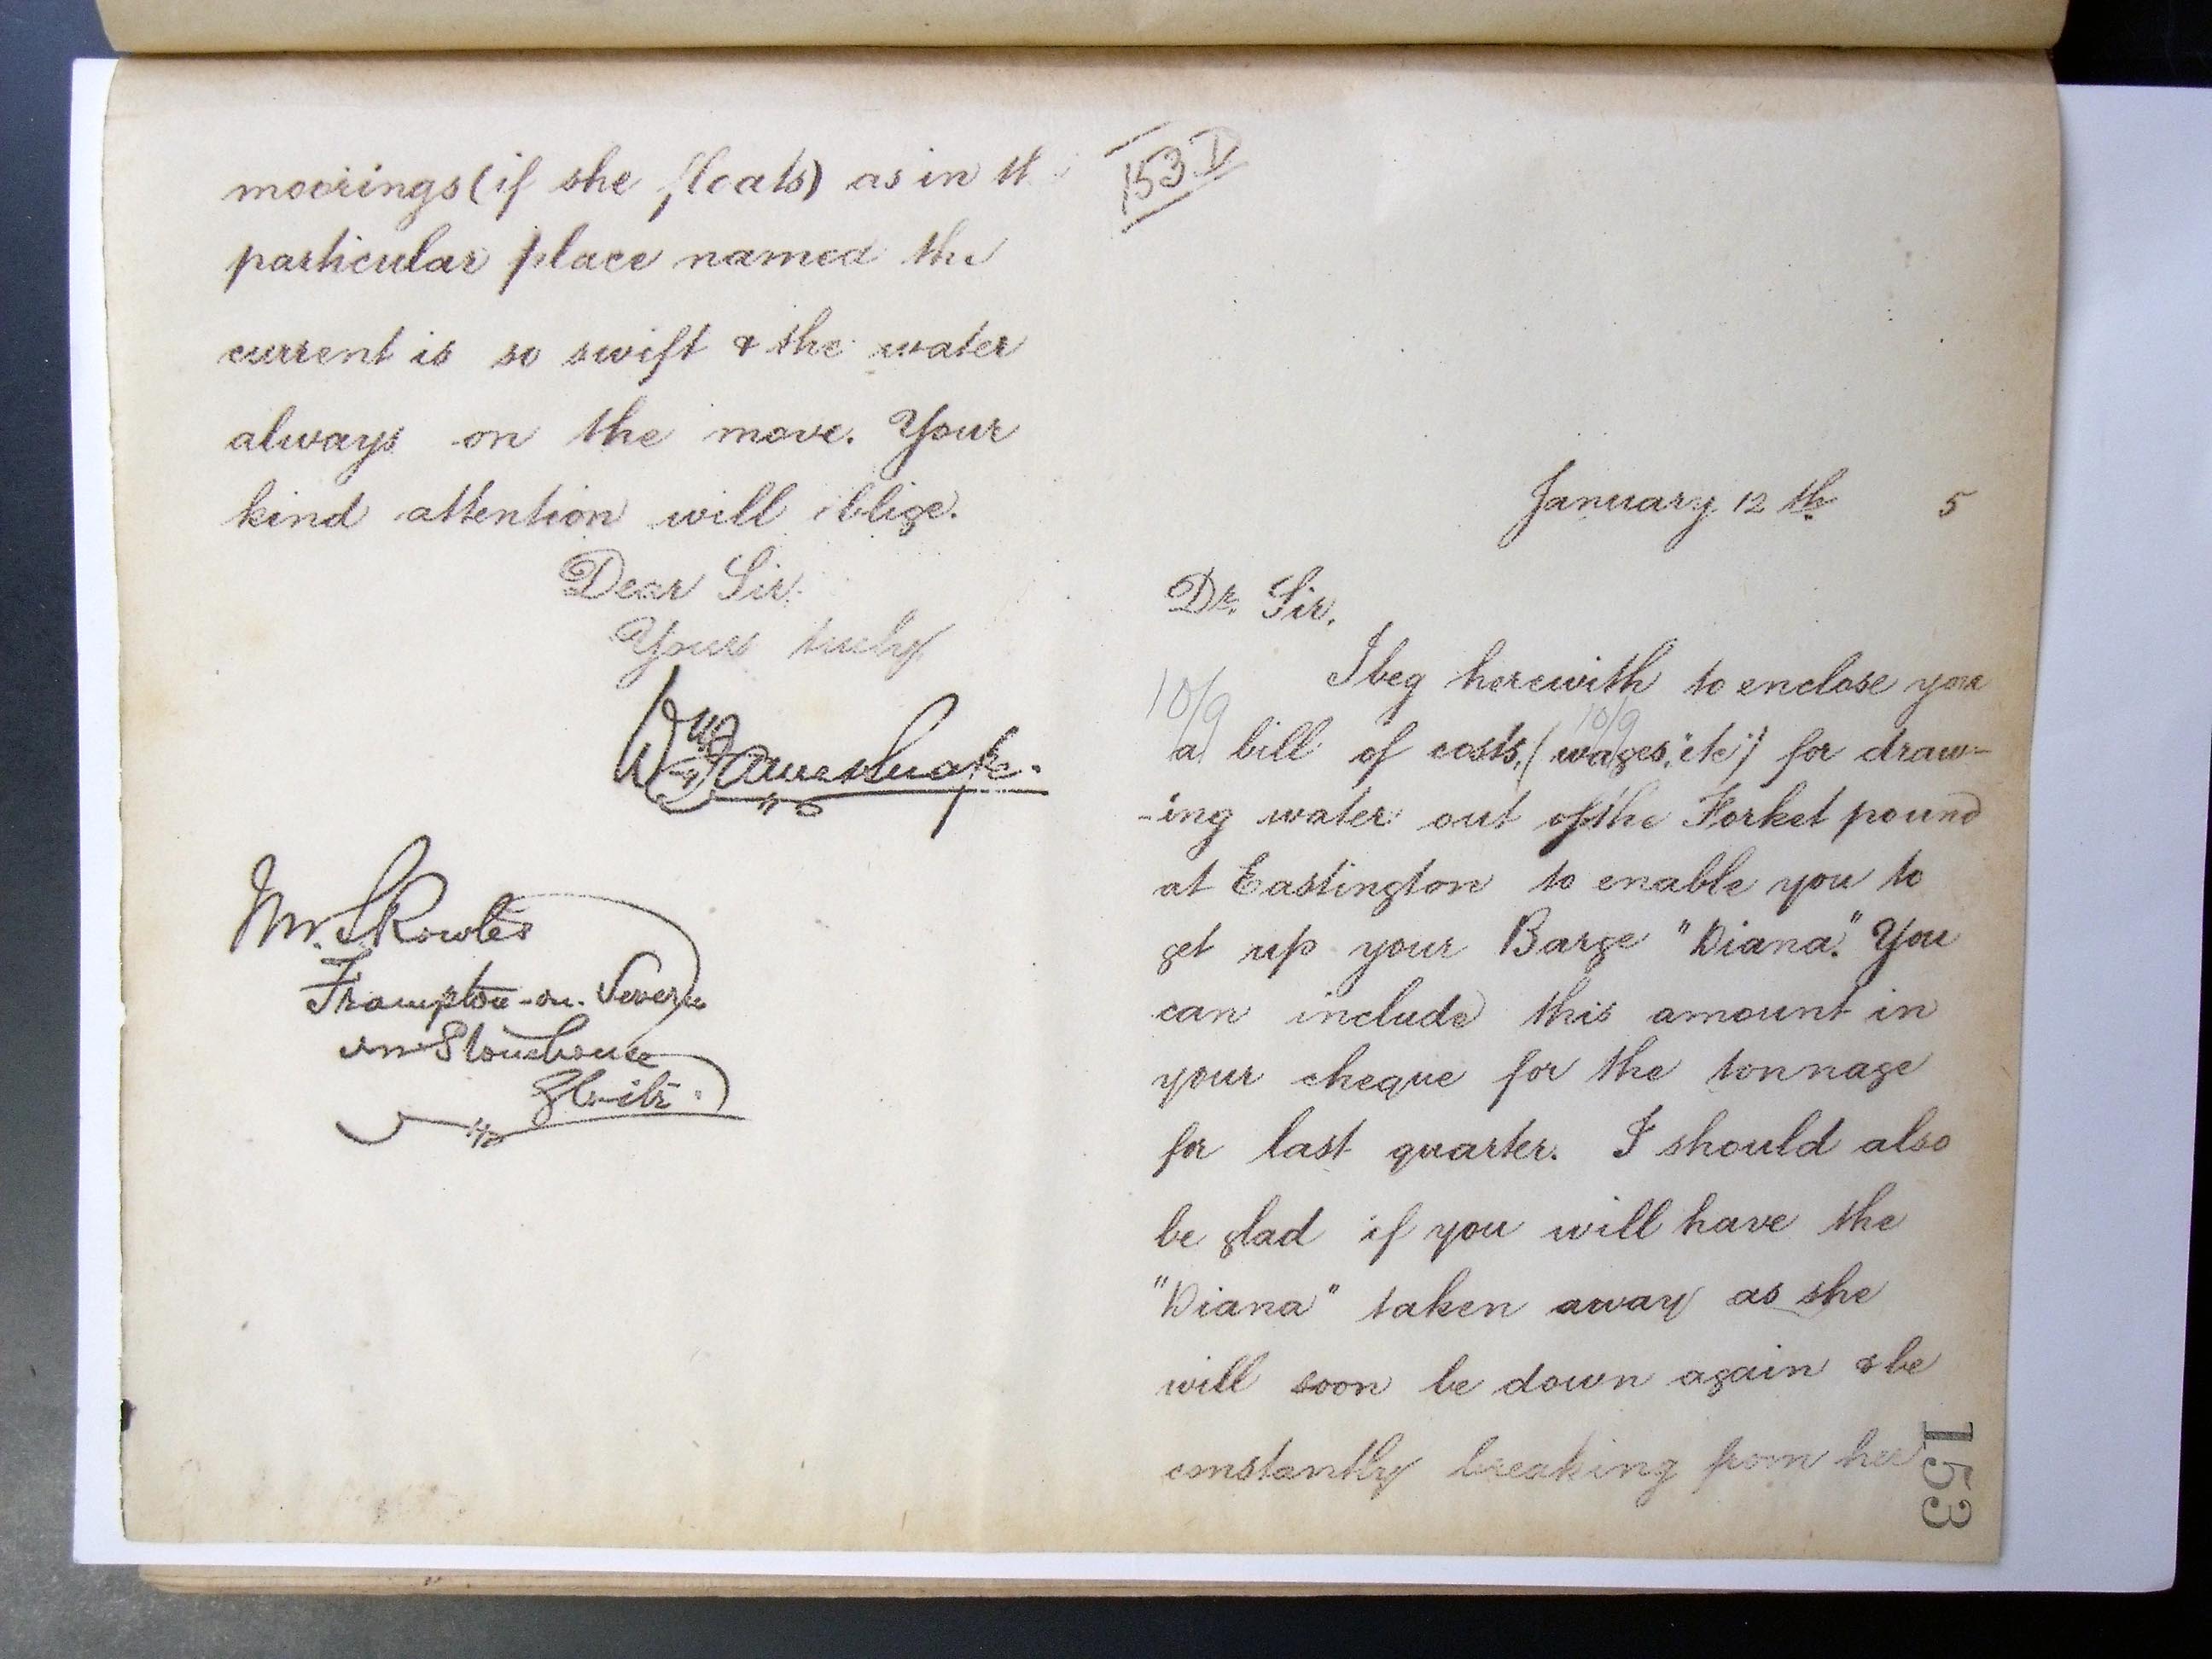 153 V
January 12th 5
Dr. Sir,
I beg herewith to enclose you
10/9
10/9
a bill of costs, (wages, etc) for draw-
-ing water out of the Forket pound
at Eastington to enable you to
get up your Barge "Diana". You
can include this amount in
your cheque for the tonnage
for last quarter. I should also
be glad if you will have the
"Diana" taken away as she
will soon be down again & be
constantly breaking from her
153
moorings (if she floats) as in th
particular place named the
current is so swift & the water
always on the move. Your
kind attention will oblige.
Dear Sir.
Yours truly
Wm
Mr. S Rowles
Frampton-on-Severn
Stonehouse